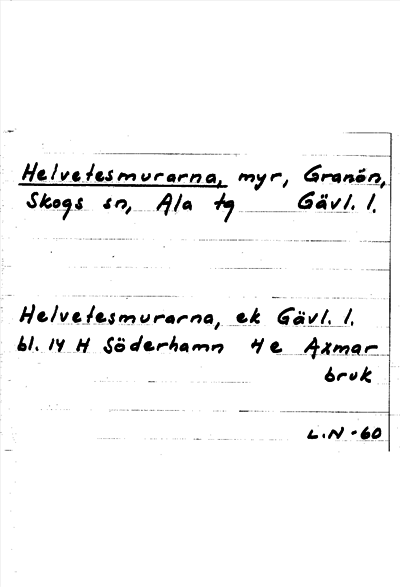 Helvetesmurarna, myr, Granön,
Skogs sn, Ala tg Gävl. l.
Helvetesmurarna, ek Gävl. l.
bl. 14 H Söderhamn 4 e Axmar
bruk
L.N -60